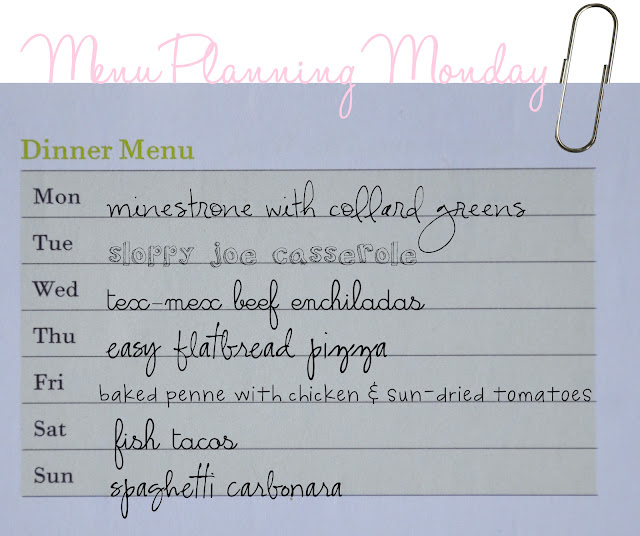 Menu Planning Monday
Dinner Menu
Mon minestrone with collard greens
Tue sloppy joe casserole
Wed tex-mex beef enchiladas
Thu easy flatbread pizza
Fri baked penne with chicken & sun-dried tomatoes
Sat fish tacos
Sun spaghetti carbonara